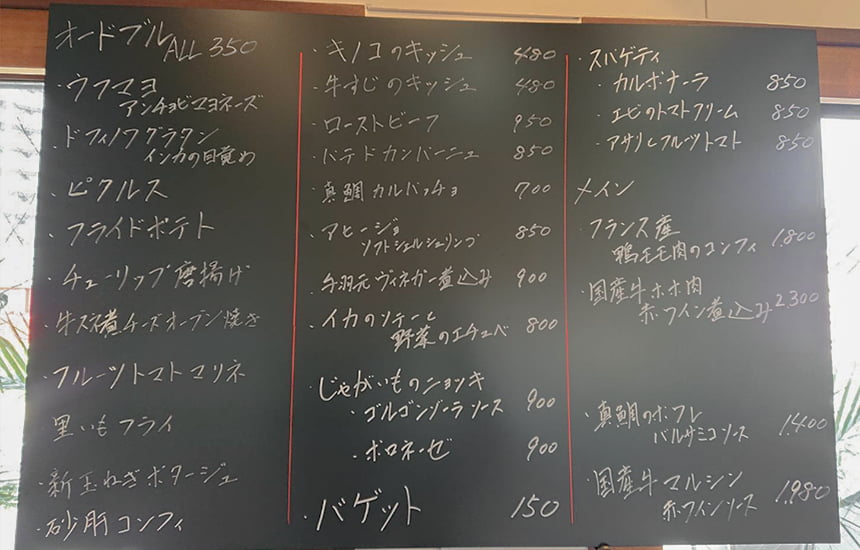 オードブル ALL 350
・ウフマヨ
アンチョビマヨネーズ
・ドフィノワグラタン
インカの目覚め
・ピクルス
・フライドポテト
・チューリップ唐揚げ
・牛スネ煮チーズオーブン焼き
・フルーツトマトマリネ
・里いもフライ
・新玉ねぎポタージュ
・砂肝コンフィ
・キノコのキッシュ 480
・牛すじのキッシュ 480
・ローストビーフ 950
・パテドカンパーニュ 850
・真鯛カルパッチョ 700
・アヒージョ 850
ソフトシェルシュリンプ
・手羽元ヴィネガー煮込み 900
・イカのソテーと
野菜のエチュベ 800
・じゃがいものニョッキ
・ゴルゴンゾーラソース 900
・ボロネーゼ 900
・バゲット 150
・スパゲティ
・カルボナーラ 850
・エビのトマトクリーム 850
・アサリとフルーツトマト 850
メイン
・フランス産
鴨モモ肉のコンフィ 1,800
・国産牛ホホ肉
赤ワイン煮込み 2,300
・真鯛のポワレ
バルサミコソース 1,400
・国産牛マルシン
赤ワインソース 1,980